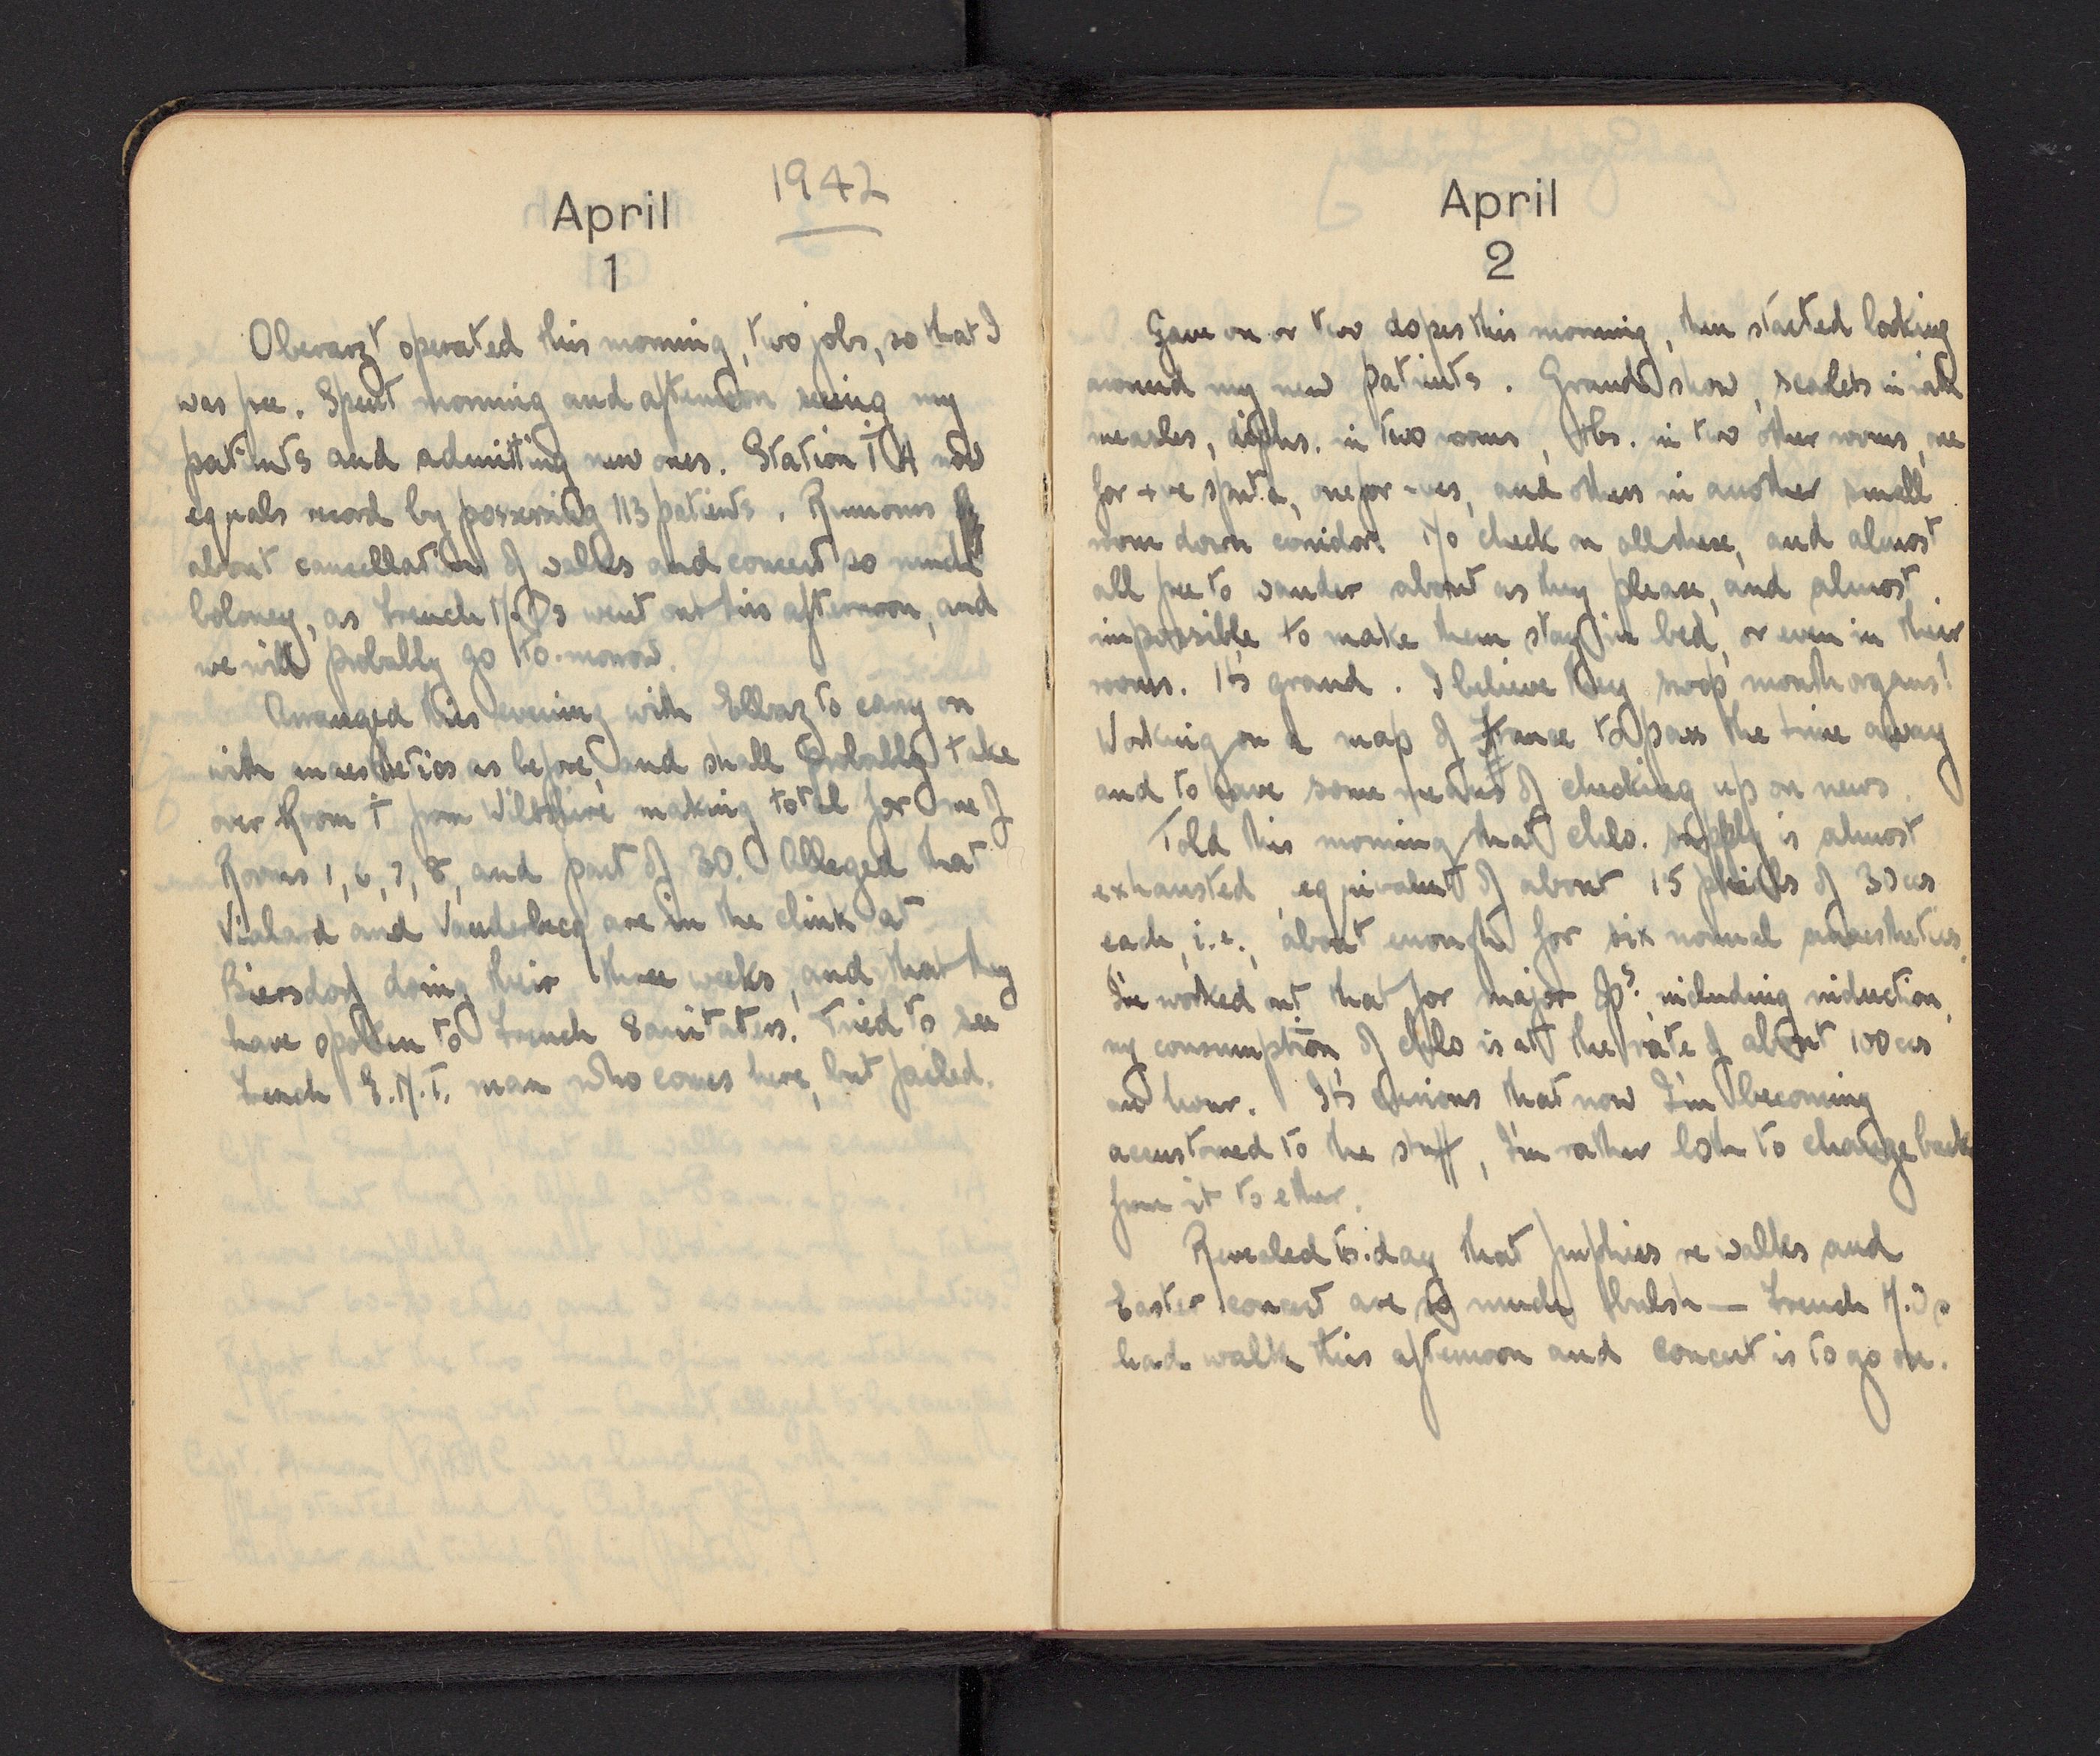 April
1942
1
Oberarzt operated this morning, two jobs, so that I
was free. Spent morning and afternoon seeing my
patients and admitting new ones. Station I A now
equals record by possessing 113 patients. Rumours
about cancellation of walks and concert so much
boloney, as French M.Os went out this afternoon, and
we will probably go to-morrow.
Arranged this evening with Elbaz to carry on
with anaesthetics as before, and shall probably take
over Room 1 from Wiltshire making total for me of
Rooms 1, 6, 7, 8, and part of 30. Alleged that
Vialard and Vanderbecq are in the clink at
doing their three weeks, and that they
have spoken to French Sanitaters. Tried to see
French E.N.T. man who comes here, but failed.
April
2
Gave one or two dopes this morning, then started looking
around my new patients. Grand show, scarlets in with
measles, diphs. in two rooms, tbs. in two other rooms, one
for +ve sputa, one for -ves, and others in another small
room down corridor. No check on all these, and almost
all free to wander about as they please, and almost
impossible to make them stay in bed, or even in their
rooms. It's grand. I believe they swop mouth organs!
Working on a map of France to pass the time away
and to have some means of checking up on news.
Told this morning that chlo. supply is almost
exhausted, equivalent of about 15 phials of 30 ccs
each, i.e., about enough for six normal anaesthetics.
I've worked out that for major Ops. including induction,
my consumption of chlo is at the rate of about 100 ccs
an hour. It's curious that now I'm becoming
accustomed to the stuff, I'm rather loth to change back
from it to ether.
Revealed to-day that re walks and
Easter concert are so much — French M.Os
had walk this afternoon and concert is to go on.